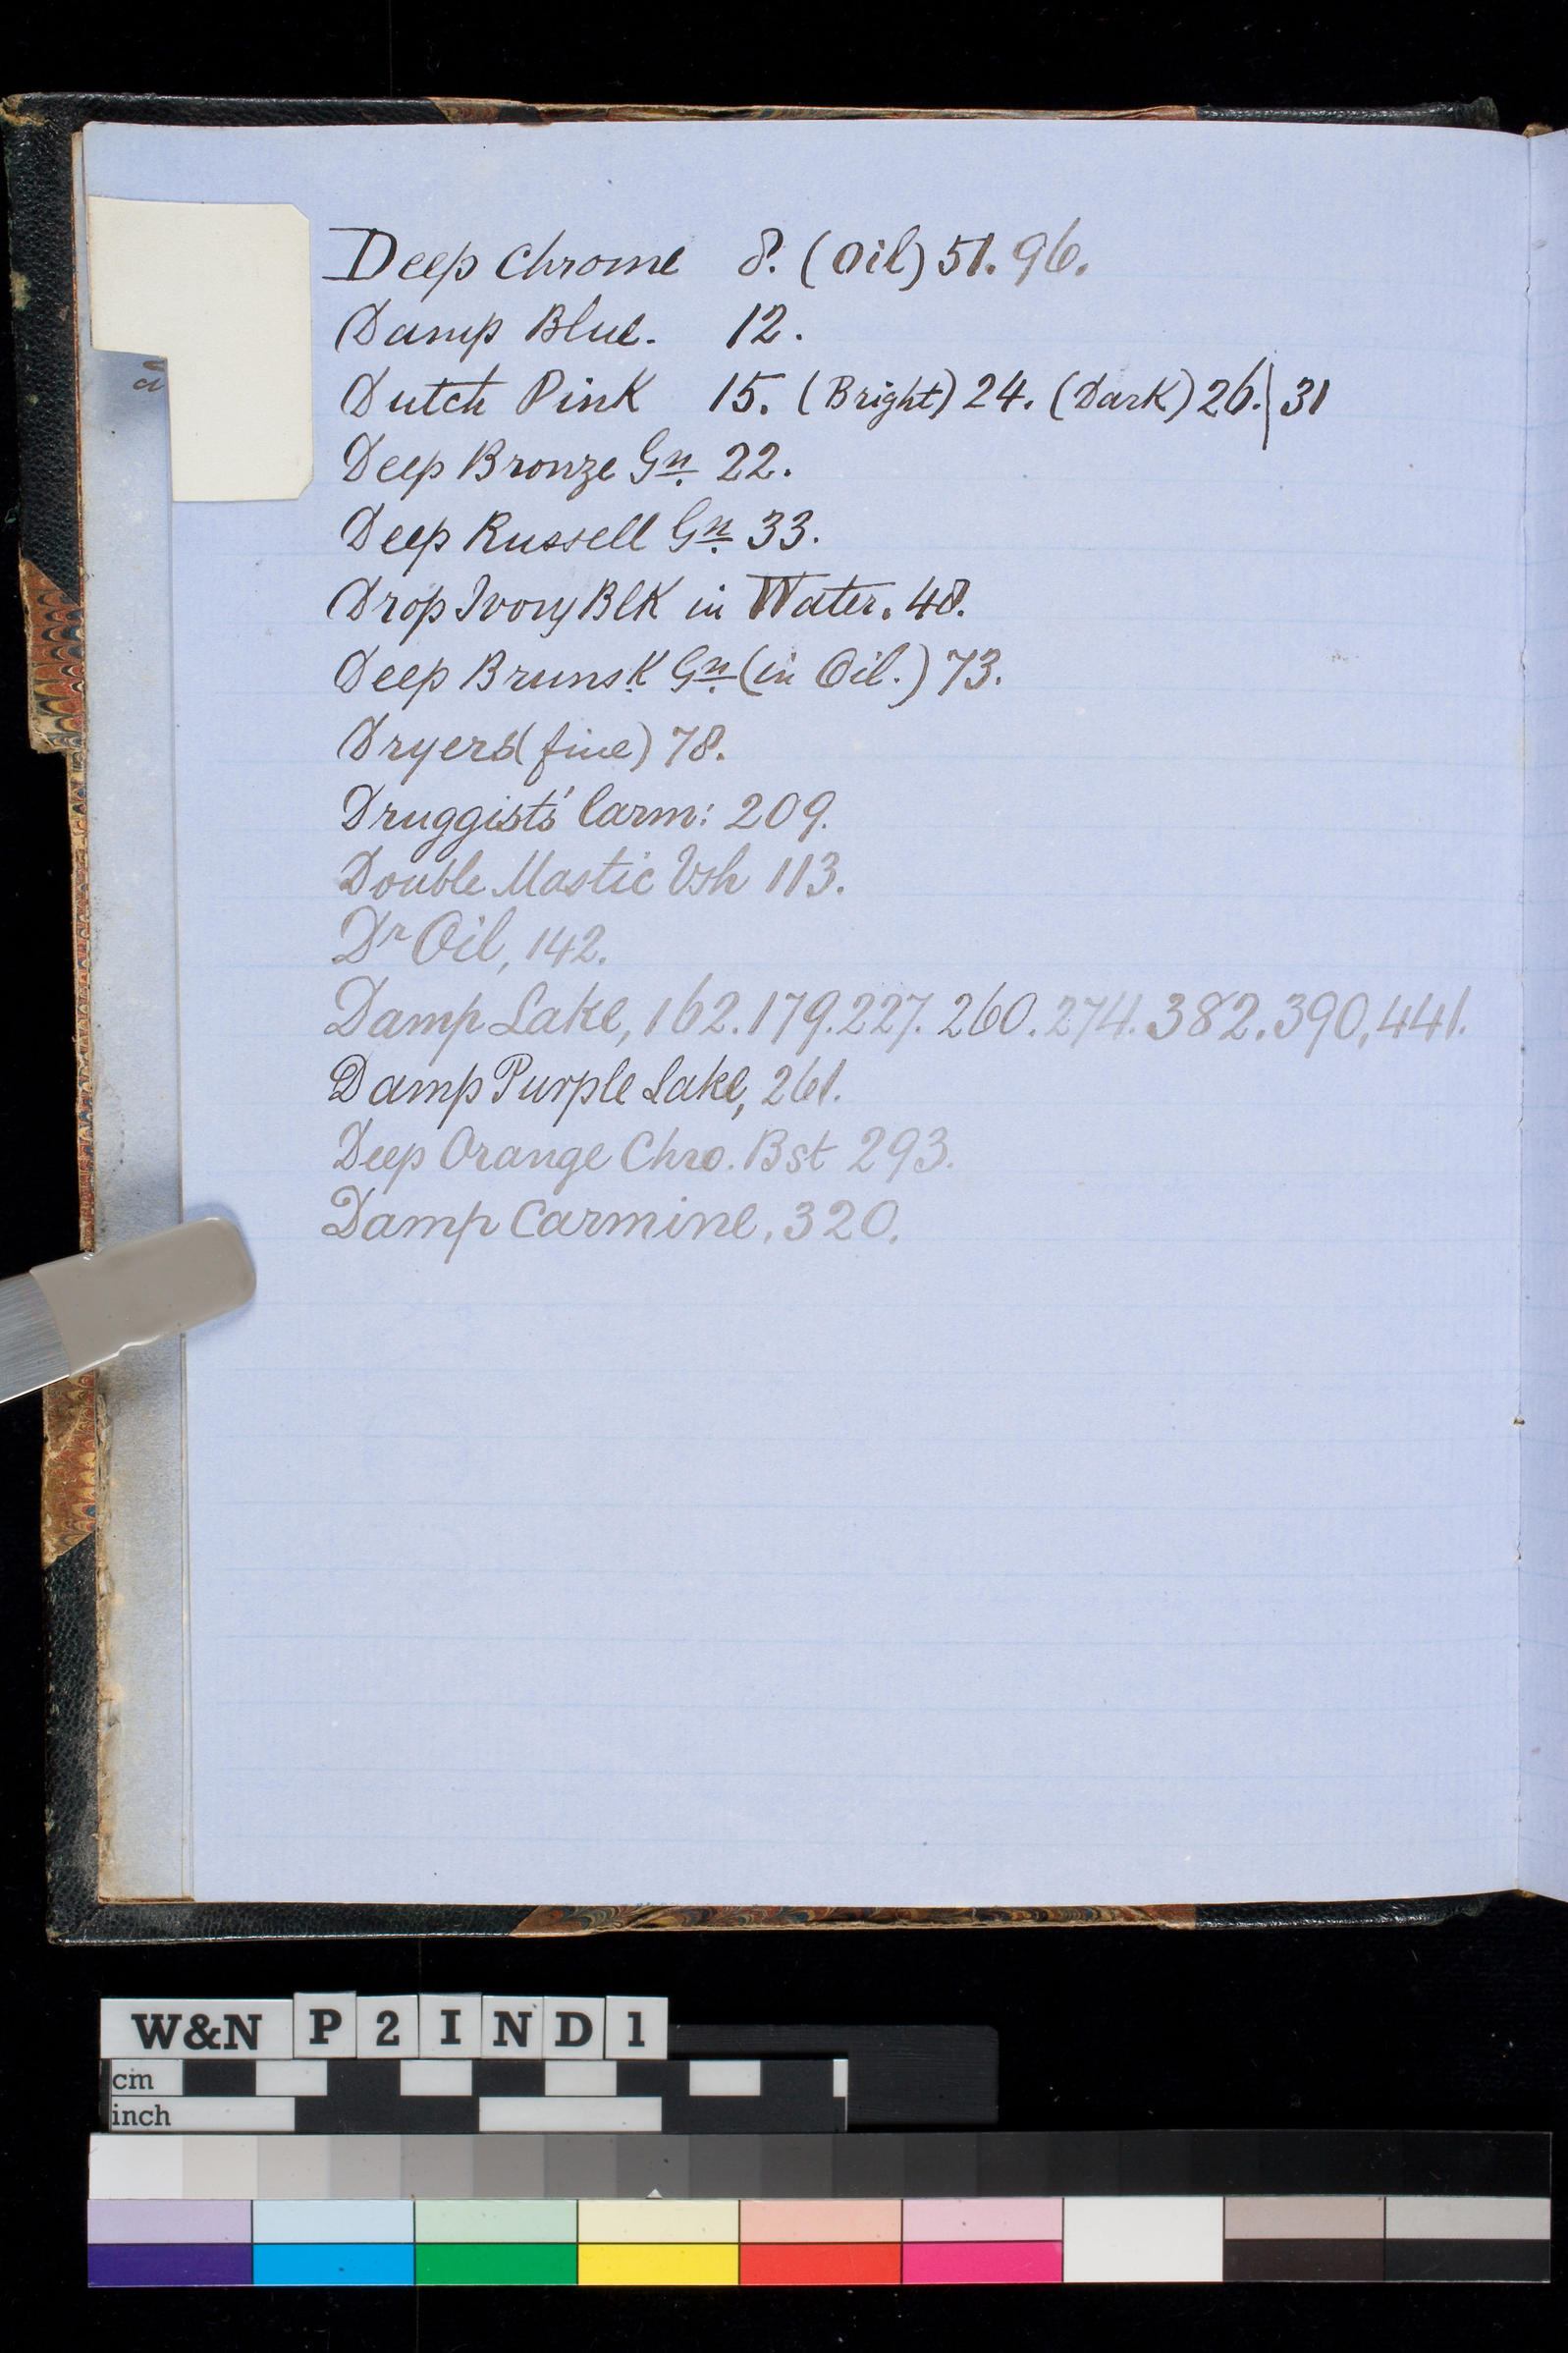 Deep Chrome 8. (Oil) 51. 96.
Damp Blue. 12.
Dutch Pink 15. (Bright) 24. (Dark) 26. | 31
Deep Bronze Gn. 22.
Deep Russell Gn. 33.
Drop Ivory Blk in Water. 48.
Deep Brunsk Gn. (in Oil.) 73.
Dryers (fine) 78.
Druggists' Carm: 209.
Double Mastic Vsh 113.
Dr Oil, 142.
Damp Lake, 162. 179. 227. 260. 274. 382. 390, 441.
Damp Purple Lake, 261.
Deep Orange Chro. Bst 293.
Damp Carmine, 320.
W&N P 2 I N D 1
cm
inch